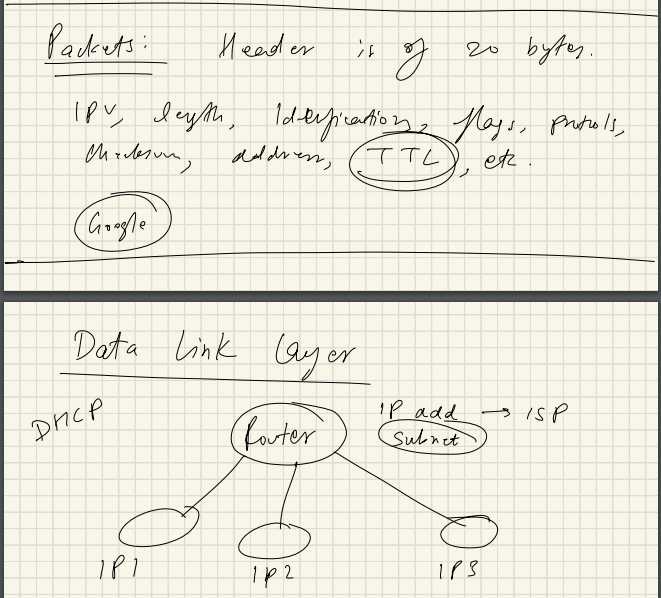 Packets: Header is of 20 bytes.
IPV, length, Identification, flags, protocols,
checksum, address, TTL, etc.
Google
Data Link Layer
DHCP
Router
IP add → ISP
Subnet
IP1
IP2
IP3